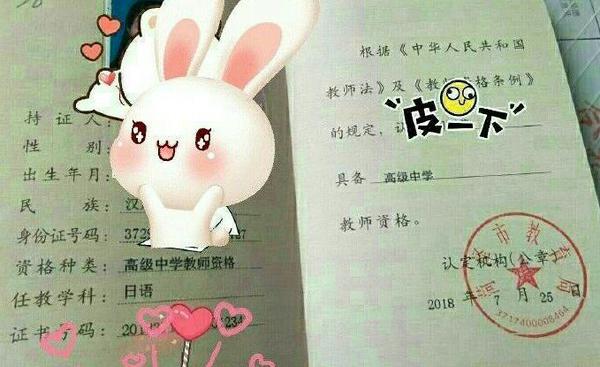 持证人:
性 别
出生年月:
民 族: 汉
身份证号码: 3729
资格种类: 高级中学教师资格
任教学科: 日语
证书号码: 201 1234
根据《中华人民共和国
教师法》及《教师资格条例》
的规定,
皮一下
具备 高级中学
教师资格。
认定机构(公章)
2018 年 7 月 25 日
市教育局
3717400008464